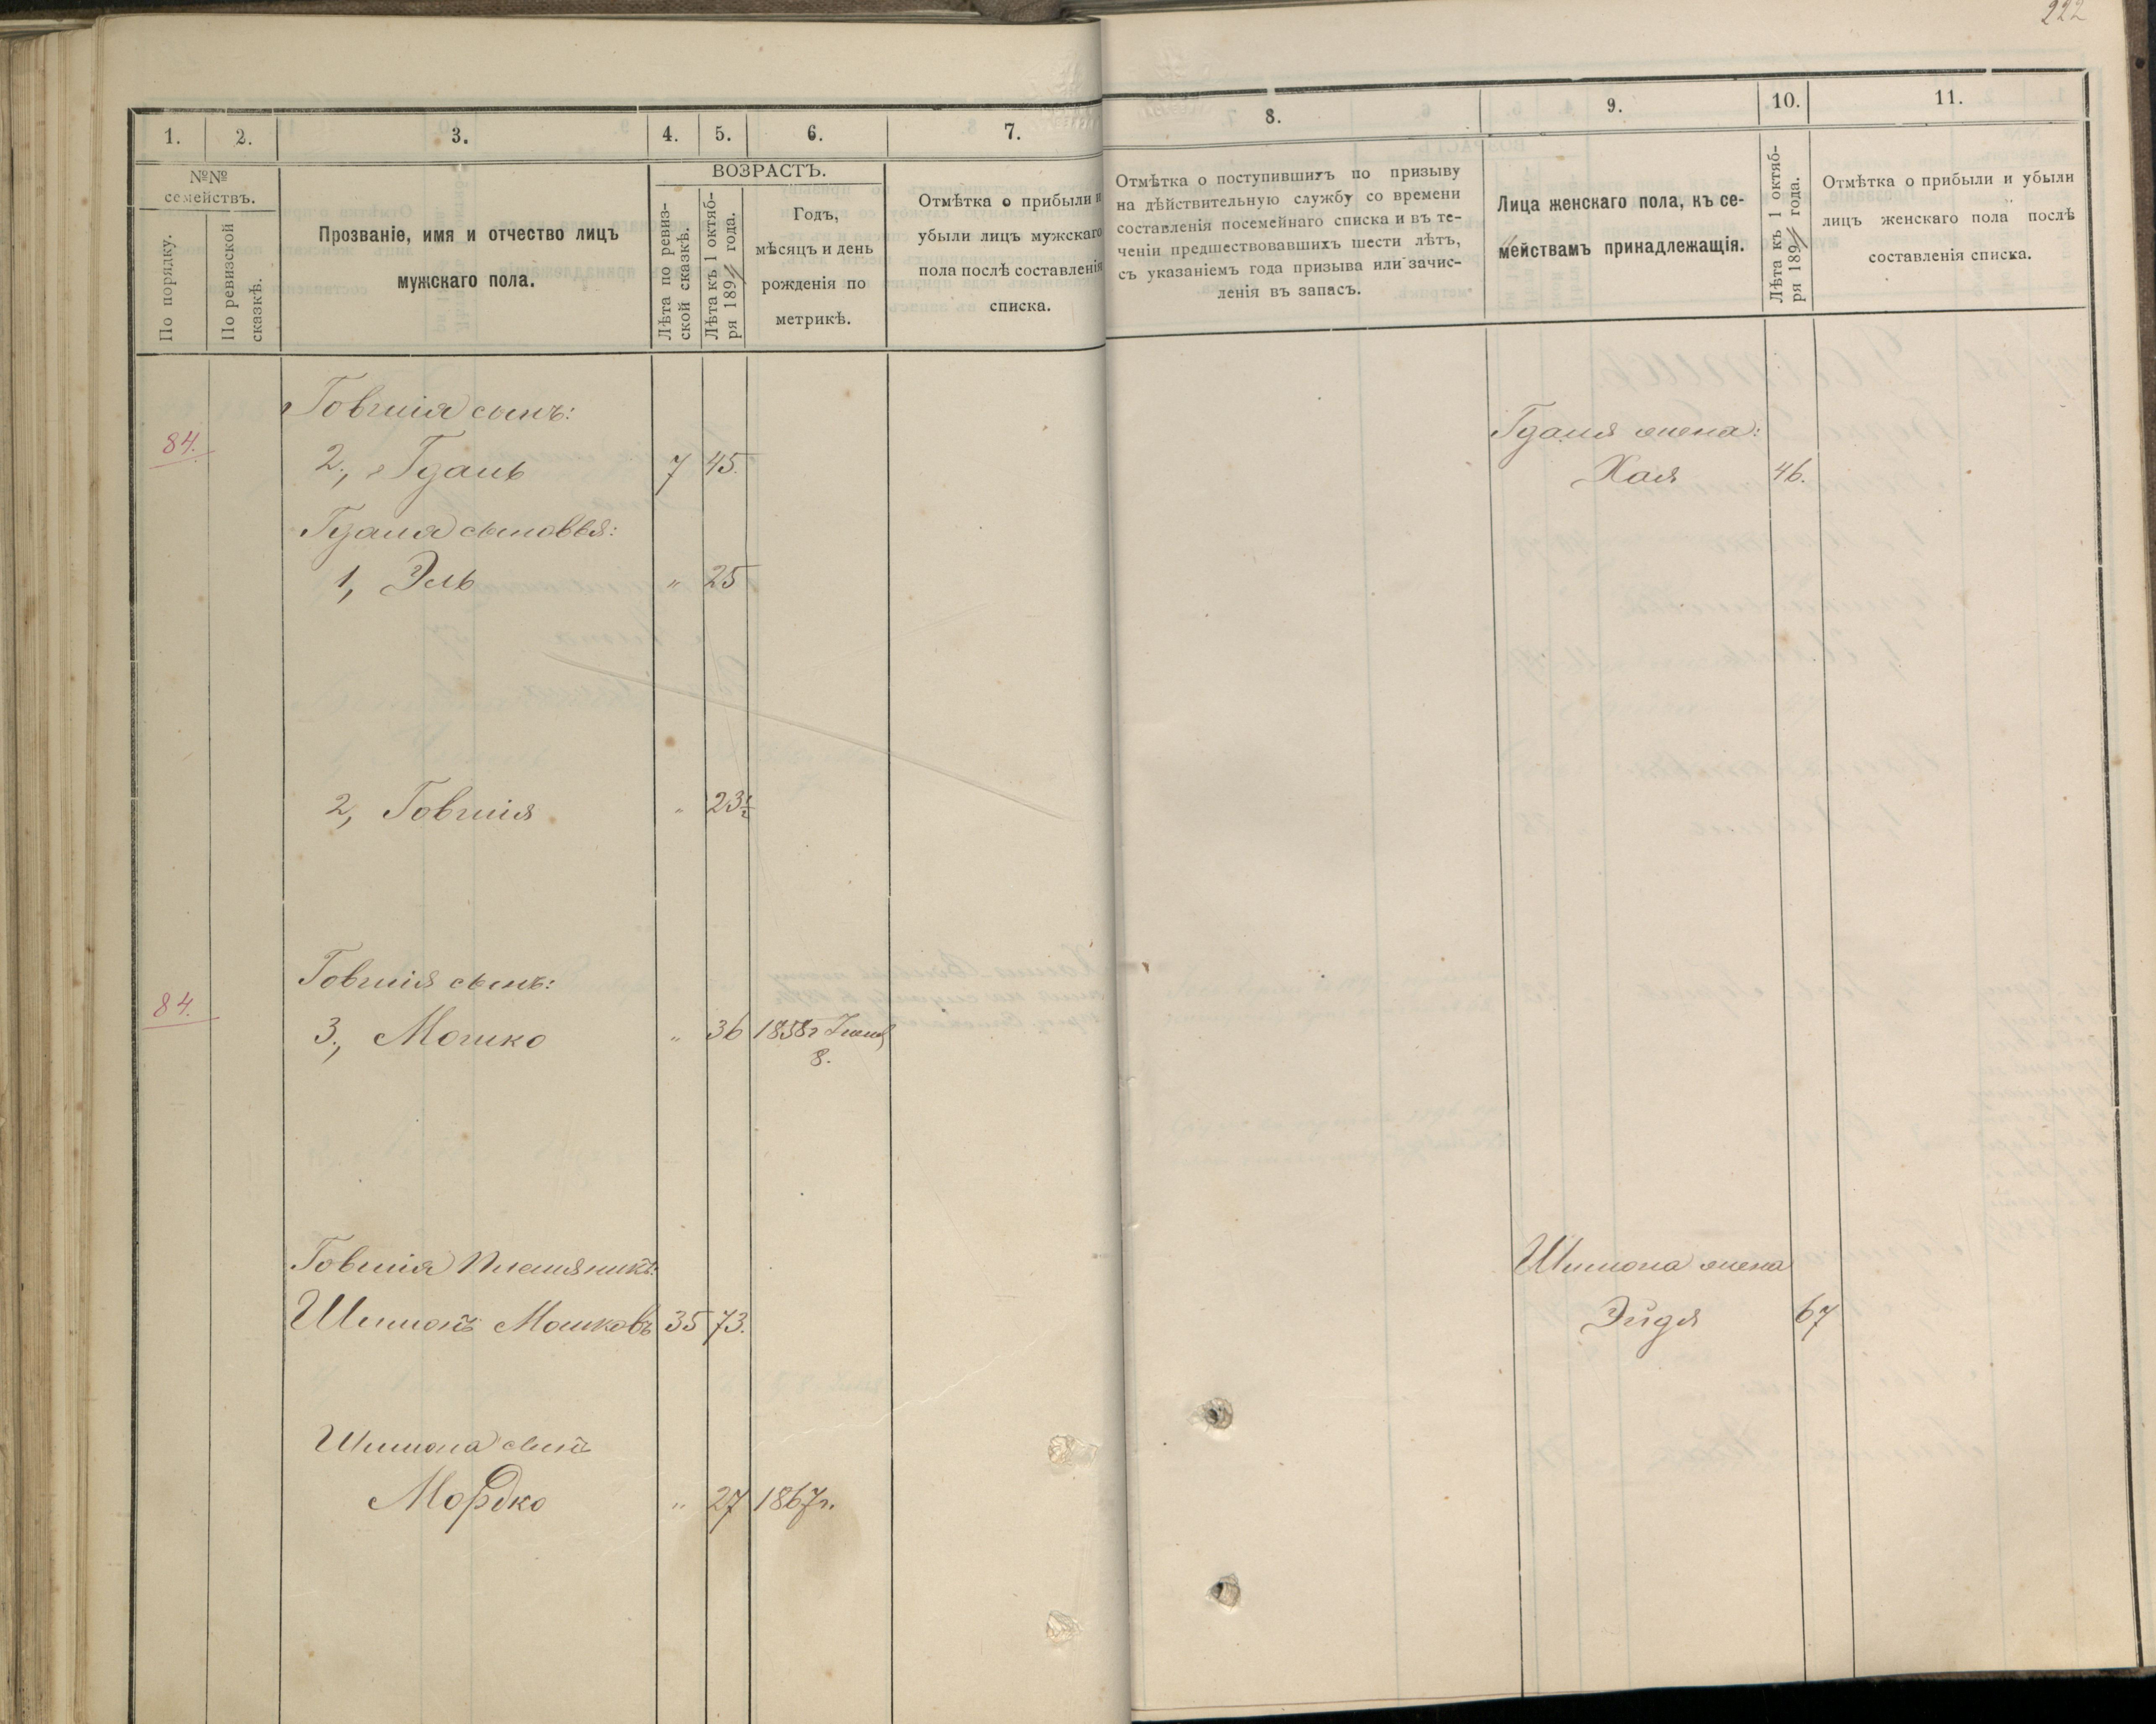 222
1.
2.
3.
4.
5.
6.
7.
8.
9.
10.
11.
№№
семействъ.
По порядку.
По ревизской
сказкѣ.
Прозваніе, имя и отчество лицъ
мужскаго пола.
ВОЗРАСТЪ.
Лѣта по ревиз-
ской сказкѣ.
Лѣта къ 1 октяб-
ря 189 года.
Годъ,
мѣсяцъ и день
рожденія по
метрикѣ.
Отмѣтка о прибыли и
убыли лицъ мужскаго
пола послѣ составленія
списка.
Отмѣтка о поступившихъ по призыву
на дѣйствительную службу со времени
составленія посемейнаго списка и въ те-
ченіи предшествовавшихъ шести лѣтъ,
съ указаніемъ года призыва или зачис-
ленія въ запасъ.
Лица женскаго пола, къ се-
мействамъ принадлежащія.
Лѣта къ 1 октяб-
ря 189 года.
Отмѣтка о прибыли и убыли
лицъ женскаго пола послѣ
составленія списка.
Говшія сынъ:
84.
2., Гдаль 7 45.
Гдаля жена:
Хая 46.
Гдаля сыновья:
1, Эль " 25
2, Говшія " 23½
Говшія сынъ:
84.
3., Мошко " 36 1858г
8.
Говшія Племяникъ:
Шимонъ Мошковъ 35 73.
Шимона жена
Эйдя 67
Шимона сынъ
Мордко " 27 1867г.